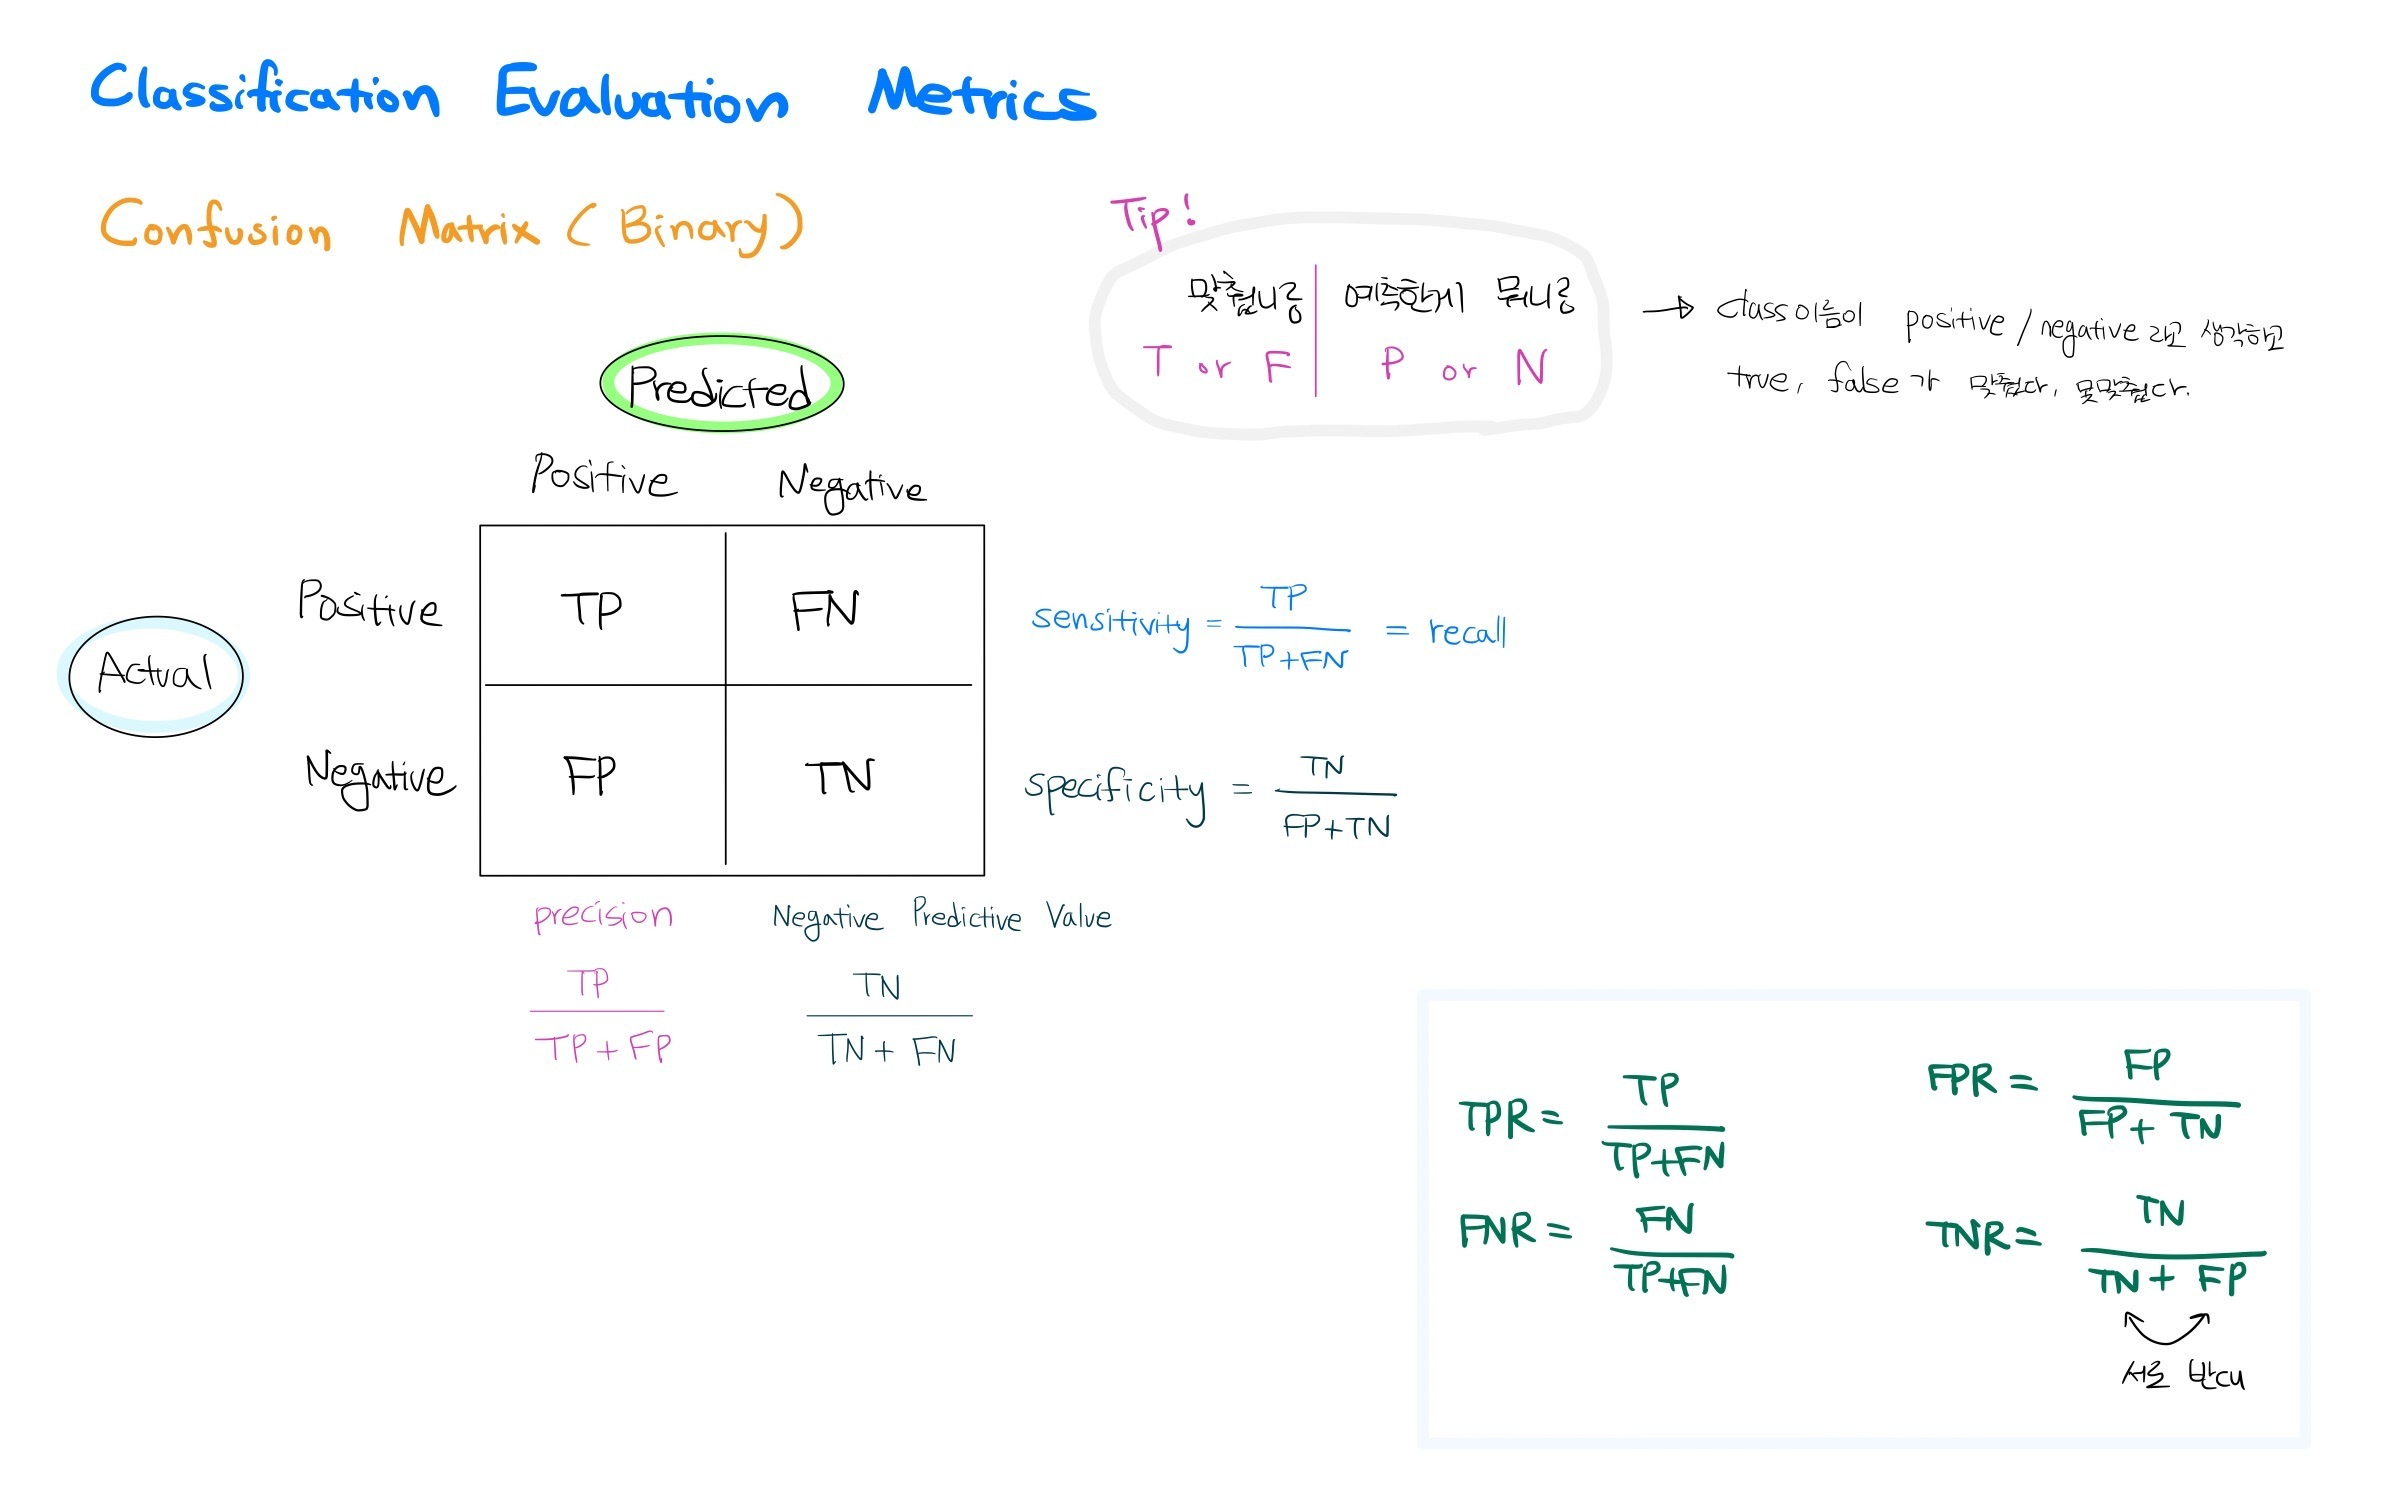 Classification Evaluation Metrics
Confusion Matrix (Binary)
Tip!
맞췄니? | 예측한게 뭐니?
T or F | P or N
→ class이름이 positive / negative 라고 생각하고
true, false 가 맞췄다, 못맞췄다.
Predicted
Positive Negative
Actual
Positive TP FN
sensitivity = TP / TP+FN = recall
Negative FP TN
specificity = TN / FP+TN
precision
TP
TP + FP
Negative Predictive Value
TN
TN + FN
TPR = TP / TP+FN
FPR = FP / FP+ TN
FNR = FN / TP+FN
TNR = TN / TN + FP
서로 반대